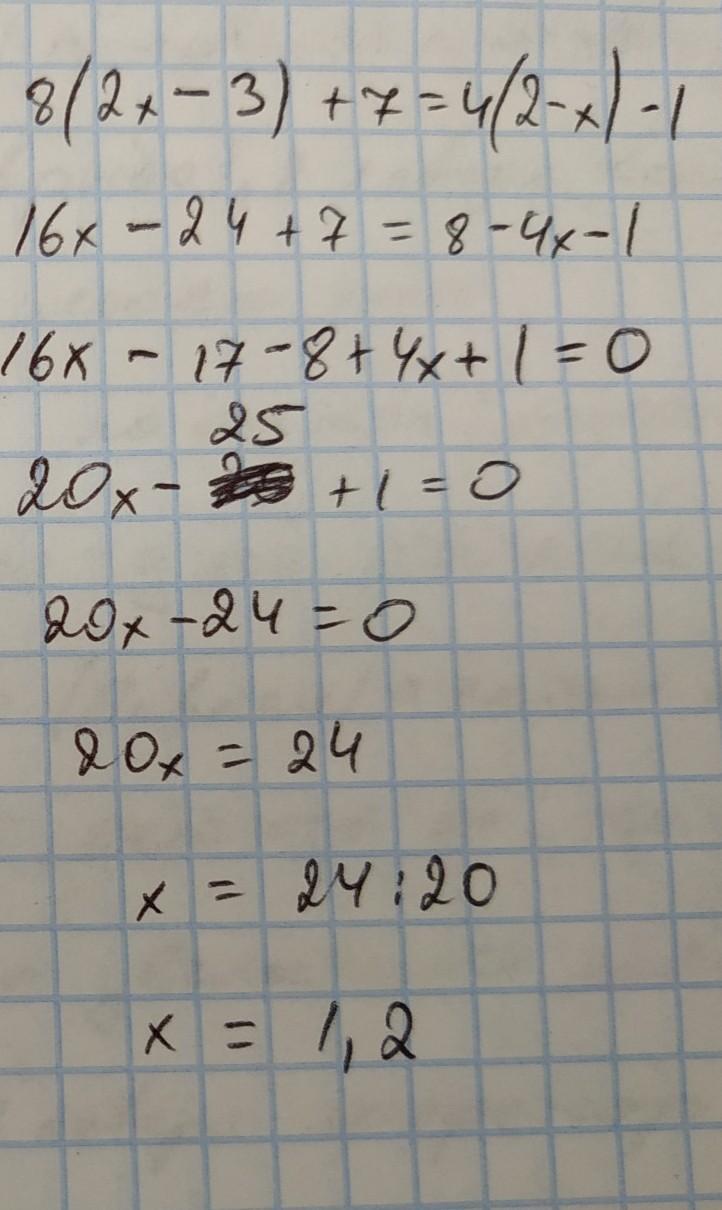 8(2x - 3) + 7 = 4(2 - x) - 1
16x - 24 + 7 = 8 - 4x - 1
16x - 17 - 8 + 4x + 1 = 0
25
20x - + 1 = 0
20x - 24 = 0
20x = 24
x = 24 : 20
x = 1,2